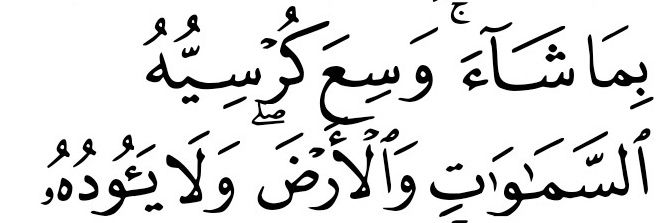 بِمَا شَآءَ ۚ وَسِعَ كُرْسِيُّهُ
ٱلسَّمَـٰوَٰتِ وَٱلْأَرْضَ ۖ وَلَا يَـُٔودُهُۥ